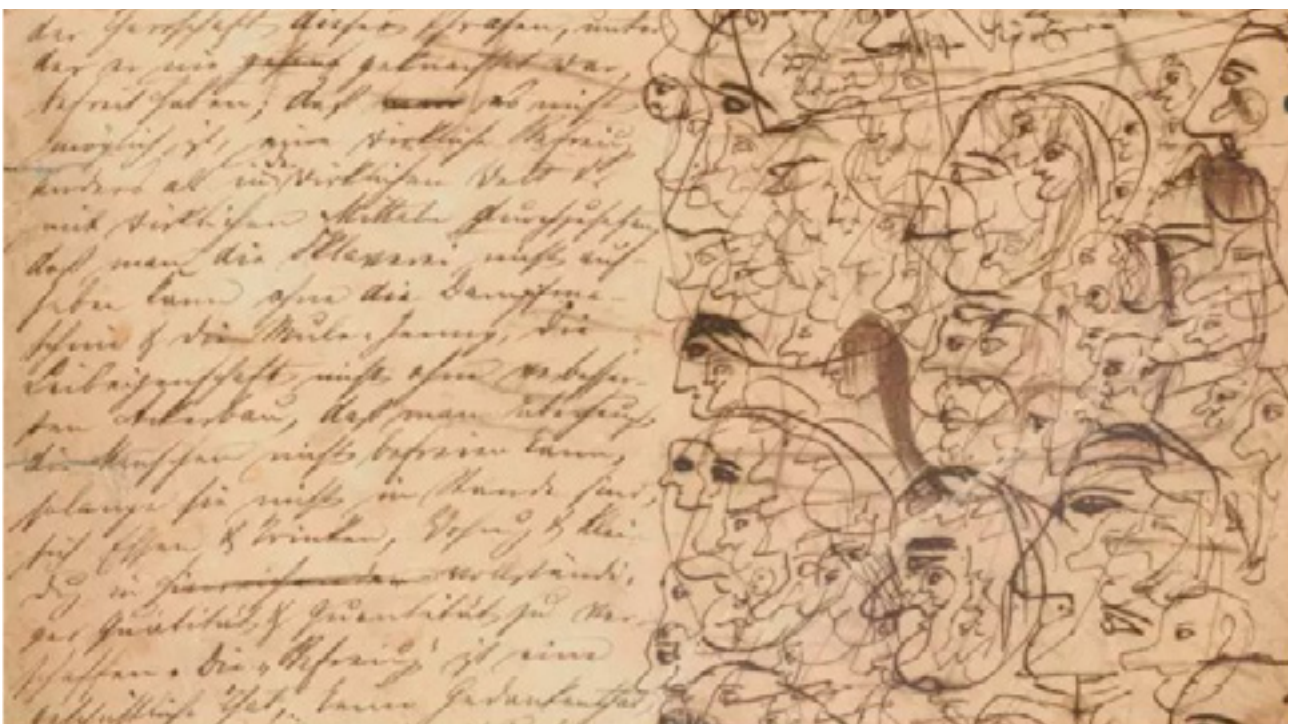 der Herrschaft dieser Phrasen, unter
der er nie geknechtet war,
befreit haben; daß es nicht
möglich ist, eine wirkliche Befreiu
anders als in der wirklichen Welt &
mit wirklichen Mitteln durchzusetzen,
daß man die Sklaverei nicht auf-
heben kann ohne die Dampfma-
schine & die Mule-Jenny, die
Leibeigenschaft nicht ohne verbesser-
ten Ackerbau, daß man überhaupt
die Menschen nicht befreien kann,
solange sie nicht im Stande sind,
sich Essen & Trinken, Wohnug & Klei-
dug in vollständi-
ger Qualität & Quantität zu ver-
schaffen. Die „Befreiug" ist eine
geschichtliche That, keine Gedankenthat,